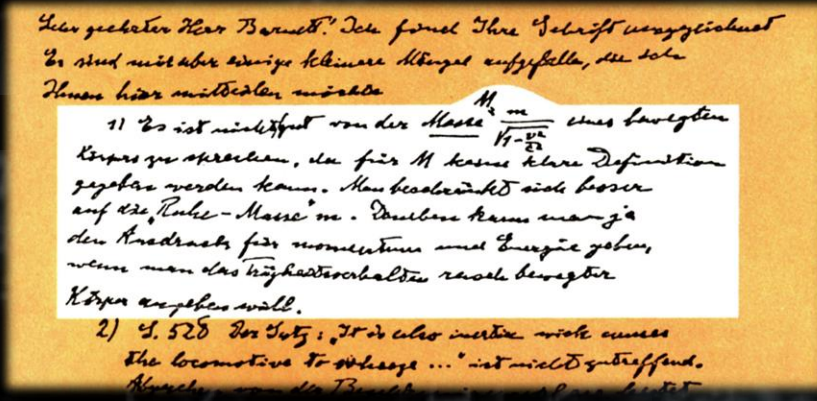 Sehr geehrter Herr Barnett! Ich finde Ihre Schrift ausgezeichnet
Es sind mir aber einige kleinere Mängel aufgefallen, die ich
Ihnen hier mitteilen möchte
1) Es ist nicht gut von der Masse M = m/√(1-v²/c²) eines bewegten
Körpers zu sprechen, da für M keine klare Definition
gegeben werden kann. Man beschränkt sich besser
auf die „Ruhe-Masse" m. Daneben kann man ja
den Ausdruck für momentum und Energie geben,
wenn man das Trägheitsverhalten rasch bewegter
Körper angeben will.
2) S. 528 Der Satz: „It is also inertia wich causes
the locomotive to wheeze ..." ist nicht zutreffend.
von der